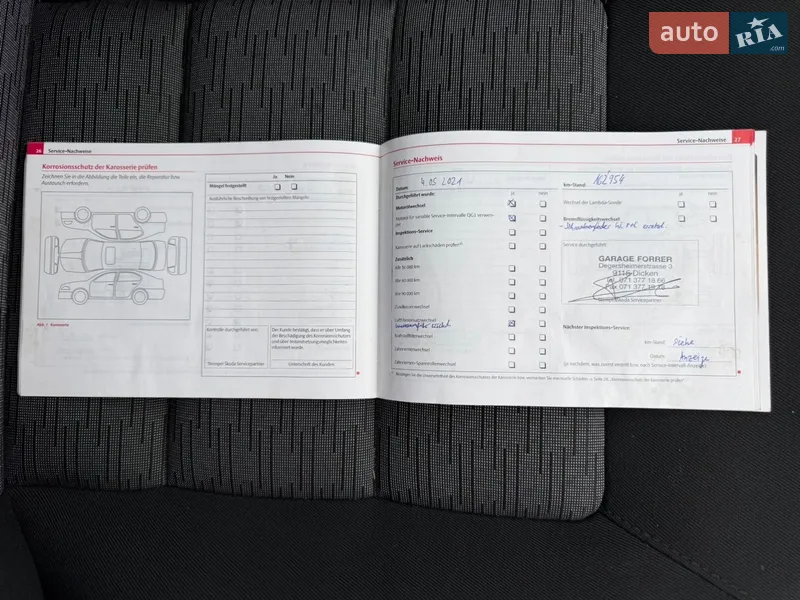 auto RIA .com
26 Service-Nachweise
Korrosionsschutz der Karosserie prüfen
Zeichnen Sie in die Abbildung die Teile ein, die Reparatur bzw.
Austausch erfordern.
Abb. 1 Karosserie
Ja Nein
Mängel festgestellt
Ausführliche Beschreibung von festgestellten Mängeln:
Kontrolle durchgeführt von:
Der Kunde bestätigt, dass er über Umfang
der Beschädigung des Korrosionsschutzes
und über Instandsetzungsmöglichkeiten
informiert wurde.
Stempel Škoda Servicepartner
Unterschrift des Kunden
Service-Nachweise 27
Service-Nachweis
Datum: 4.05.2021
km-Stand: 162'954
Durchgeführt wurde:
ja nein
Motorölwechsel
Motoröl für variable Service-Intervalle QG1 verwendet
Inspektions-Service
Karosserie auf Lackschäden prüfen
Zusätzlich
Alle 30 000 km
Alle 60 000 km
Alle 90 000 km
Zündkerzenwechsel
Luftfiltereinsatzwechsel
Kraftstofffilterwechsel
Zahnriemenwechsel
Zahnriemen-Spannrollenwechsel
ja nein
Wechsel der Lambda-Sonde
Bremsflüssigkeitswechsel
Service durchgeführt:
GARAGE FORRER
Degersheimerstrasse 3
9115 Dicken
Tel. 071 377 18 66
Fax 071 377 18
Stempel Škoda Servicepartner
Nächster Inspektions-Service
km-Stand: Siehe
Datum: Anzeige
(je nachdem, was zuerst eintritt bzw. nach Service-Intervall-Anzeige)